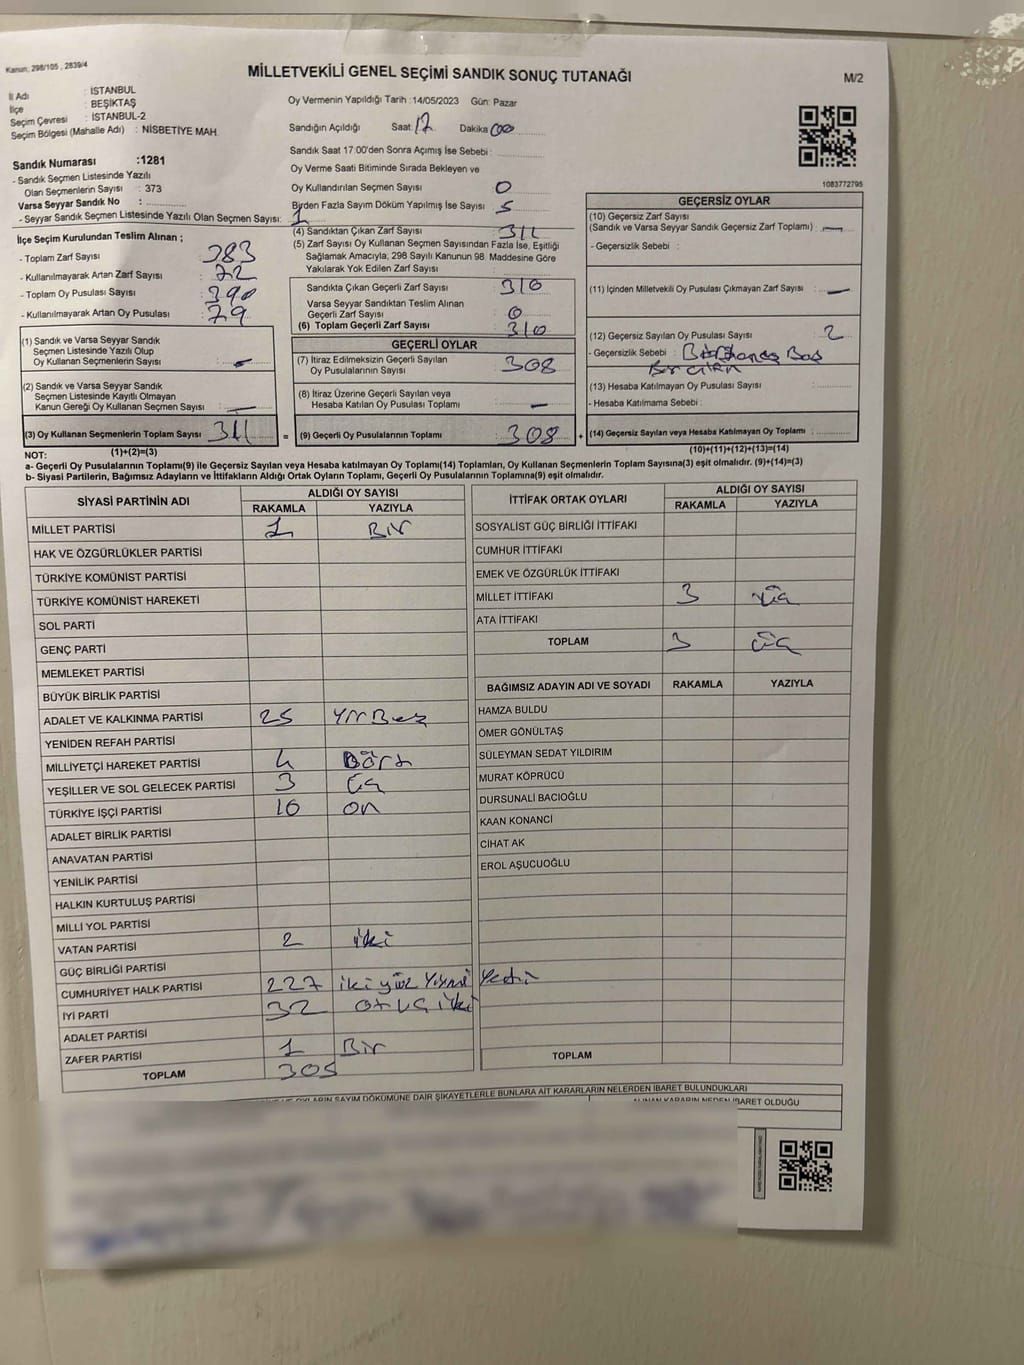 Kanun; 298/105 , 2839/4
MİLLETVEKİLİ GENEL SEÇİMİ SANDIK SONUÇ TUTANAĞI
M/2
İl Adı : İSTANBUL
İlçe : BEŞİKTAŞ
Seçim Çevresi : İSTANBUL-2
Seçim Bölgesi (Mahalle Adı) : NİSBETİYE MAH.
Oy Vermenin Yapıldığı Tarih :14/05/2023 Gün: Pazar
Sandığın Açıldığı Saat: 17 Dakika 00
Sandık Saat 17:00'den Sonra Açımış İse Sebebi :
Oy Verme Saati Bitiminde Sırada Bekleyen ve
Oy Kullandırılan Seçmen Sayısı 0
Birden Fazla Sayım Döküm Yapılmış İse Sayısı 5
1083772795
Sandık Numarası :1281
- Sandık Seçmen Listesinde Yazılı
Olan Seçmenlerin Sayısı : 373
Varsa Seyyar Sandık No :
- Seyyar Sandık Seçmen Listesinde Yazılı Olan Seçmen Sayısı: 1
İlçe Seçim Kurulundan Teslim Alınan ;
- Toplam Zarf Sayısı : 383
- Kullanılmayarak Artan Zarf Sayısı : 72
- Toplam Oy Pusulası Sayısı : 390
- Kullanılmayarak Artan Oy Pusulası : 79
(1) Sandık ve Varsa Seyyar Sandık
Seçmen Listesinde Yazılı Olup
Oy Kullanan Seçmenlerin Sayısı :
(2) Sandık ve Varsa Seyyar Sandık
Seçmen Listesinde Kayıtlı Olmayan
Kanun Gereği Oy Kullanan Seçmen Sayısı : —
(3) Oy Kullanan Seçmenlerin Toplam Sayısı 311
(1)+(2)=(3)
(4) Sandıktan Çıkan Zarf Sayısı : 311
(5) Zarf Sayısı Oy Kullanan Seçmen Sayısından Fazla İse, Eşitliği
Sağlamak Amacıyla, 298 Sayılı Kanunun 98. Maddesine Göre
Yakılarak Yok Edilen Zarf Sayısı :
Sandıkta Çıkan Geçerli Zarf Sayısı : 310
Varsa Seyyar Sandıktan Teslim Alınan
Geçerli Zarf Sayısı : 0
(6) Toplam Geçerli Zarf Sayısı : 310
GEÇERLİ OYLAR
(7) İtiraz Edilmeksizin Geçerli Sayılan
Oy Pusulalarının Sayısı : 308
(8) İtiraz Üzerine Geçerli Sayılan veya
Hesaba Katılan Oy Pusulası Toplamı : —
= (9) Geçerli Oy Pusulalarının Toplamı 308
GEÇERSİZ OYLAR
(10) Geçersiz Zarf Sayısı
(Sandık ve Varsa Seyyar Sandık Geçersiz Zarf Toplamı) : —
- Geçersizlik Sebebi :
(11) İçinden Milletvekili Oy Pusulası Çıkmayan Zarf Sayısı : —
(12) Geçersiz Sayılan Oy Pusulası Sayısı : 2
- Geçersizlik Sebebi :
(13) Hesaba Katılmayan Oy Pusulası Sayısı :
- Hesaba Katılmama Sebebi :
+ (14) Geçersiz Sayılan veya Hesaba Katılmayan Oy Toplamı :
(10)+(11)+(12)+(13)=(14)
NOT:
a- Geçerli Oy Pusulalarının Toplamı(9) ile Geçersiz Sayılan veya Hesaba katılmayan Oy Toplamı(14) Toplamları, Oy Kullanan Seçmenlerin Toplam Sayısına(3) eşit olmalıdır. (9)+(14)=(3)
b- Siyasi Partilerin, Bağımsız Adayların ve İttifakların Aldığı Oyların Toplamı, Geçerli Oy Pusulalarının Toplamına(9) eşit olmalıdır.
SİYASİ PARTİNİN ADI
ALDIĞI OY SAYISI
RAKAMLA YAZIYLA
MİLLET PARTİSİ 1 Bir
HAK VE ÖZGÜRLÜKLER PARTİSİ
TÜRKİYE KOMÜNİST PARTİSİ
TÜRKİYE KOMÜNİST HAREKETİ
SOL PARTİ
GENÇ PARTİ
MEMLEKET PARTİSİ
BÜYÜK BİRLİK PARTİSİ
ADALET VE KALKINMA PARTİSİ 25
YENİDEN REFAH PARTİSİ
MİLLİYETÇİ HAREKET PARTİSİ 4 Dört
YEŞİLLER VE SOL GELECEK PARTİSİ 3 Üç
TÜRKİYE İŞÇİ PARTİSİ 10 on
ADALET BİRLİK PARTİSİ
ANAVATAN PARTİSİ
YENİLİK PARTİSİ
HALKIN KURTULUŞ PARTİSİ
MİLLİ YOL PARTİSİ
VATAN PARTİSİ 2 iki
GÜÇ BİRLİĞİ PARTİSİ
CUMHURİYET HALK PARTİSİ 227 iki yüz Yirmi Yedi
İYİ PARTİ 32 otuz iki
ADALET PARTİSİ
ZAFER PARTİSİ 1 Bir
TOPLAM 305
İTTİFAK ORTAK OYLARI
ALDIĞI OY SAYISI
RAKAMLA YAZIYLA
SOSYALİST GÜÇ BİRLİĞİ İTTİFAKI
CUMHUR İTTİFAKI
EMEK VE ÖZGÜRLÜK İTTİFAKI
MİLLET İTTİFAKI 3 üç
ATA İTTİFAKI
TOPLAM 3 üç
BAĞIMSIZ ADAYIN ADI VE SOYADI RAKAMLA YAZIYLA
HAMZA BULDU
ÖMER GÖNÜLTAŞ
SÜLEYMAN SEDAT YILDIRIM
MURAT KÖPRÜCÜ
DURSUNALİ BACIOĞLU
KAAN KONANCİ
CİHAT AK
EROL AŞUCUOĞLU
TOPLAM
OYLARIN SAYIM DÖKÜMÜNE DAİR ŞİKAYETLERLE BUNLARA AİT KARARLARIN NELERDEN İBARET BULUNDUKLARI
ALINAN KARARIN NEDEN İBARET OLDUĞU